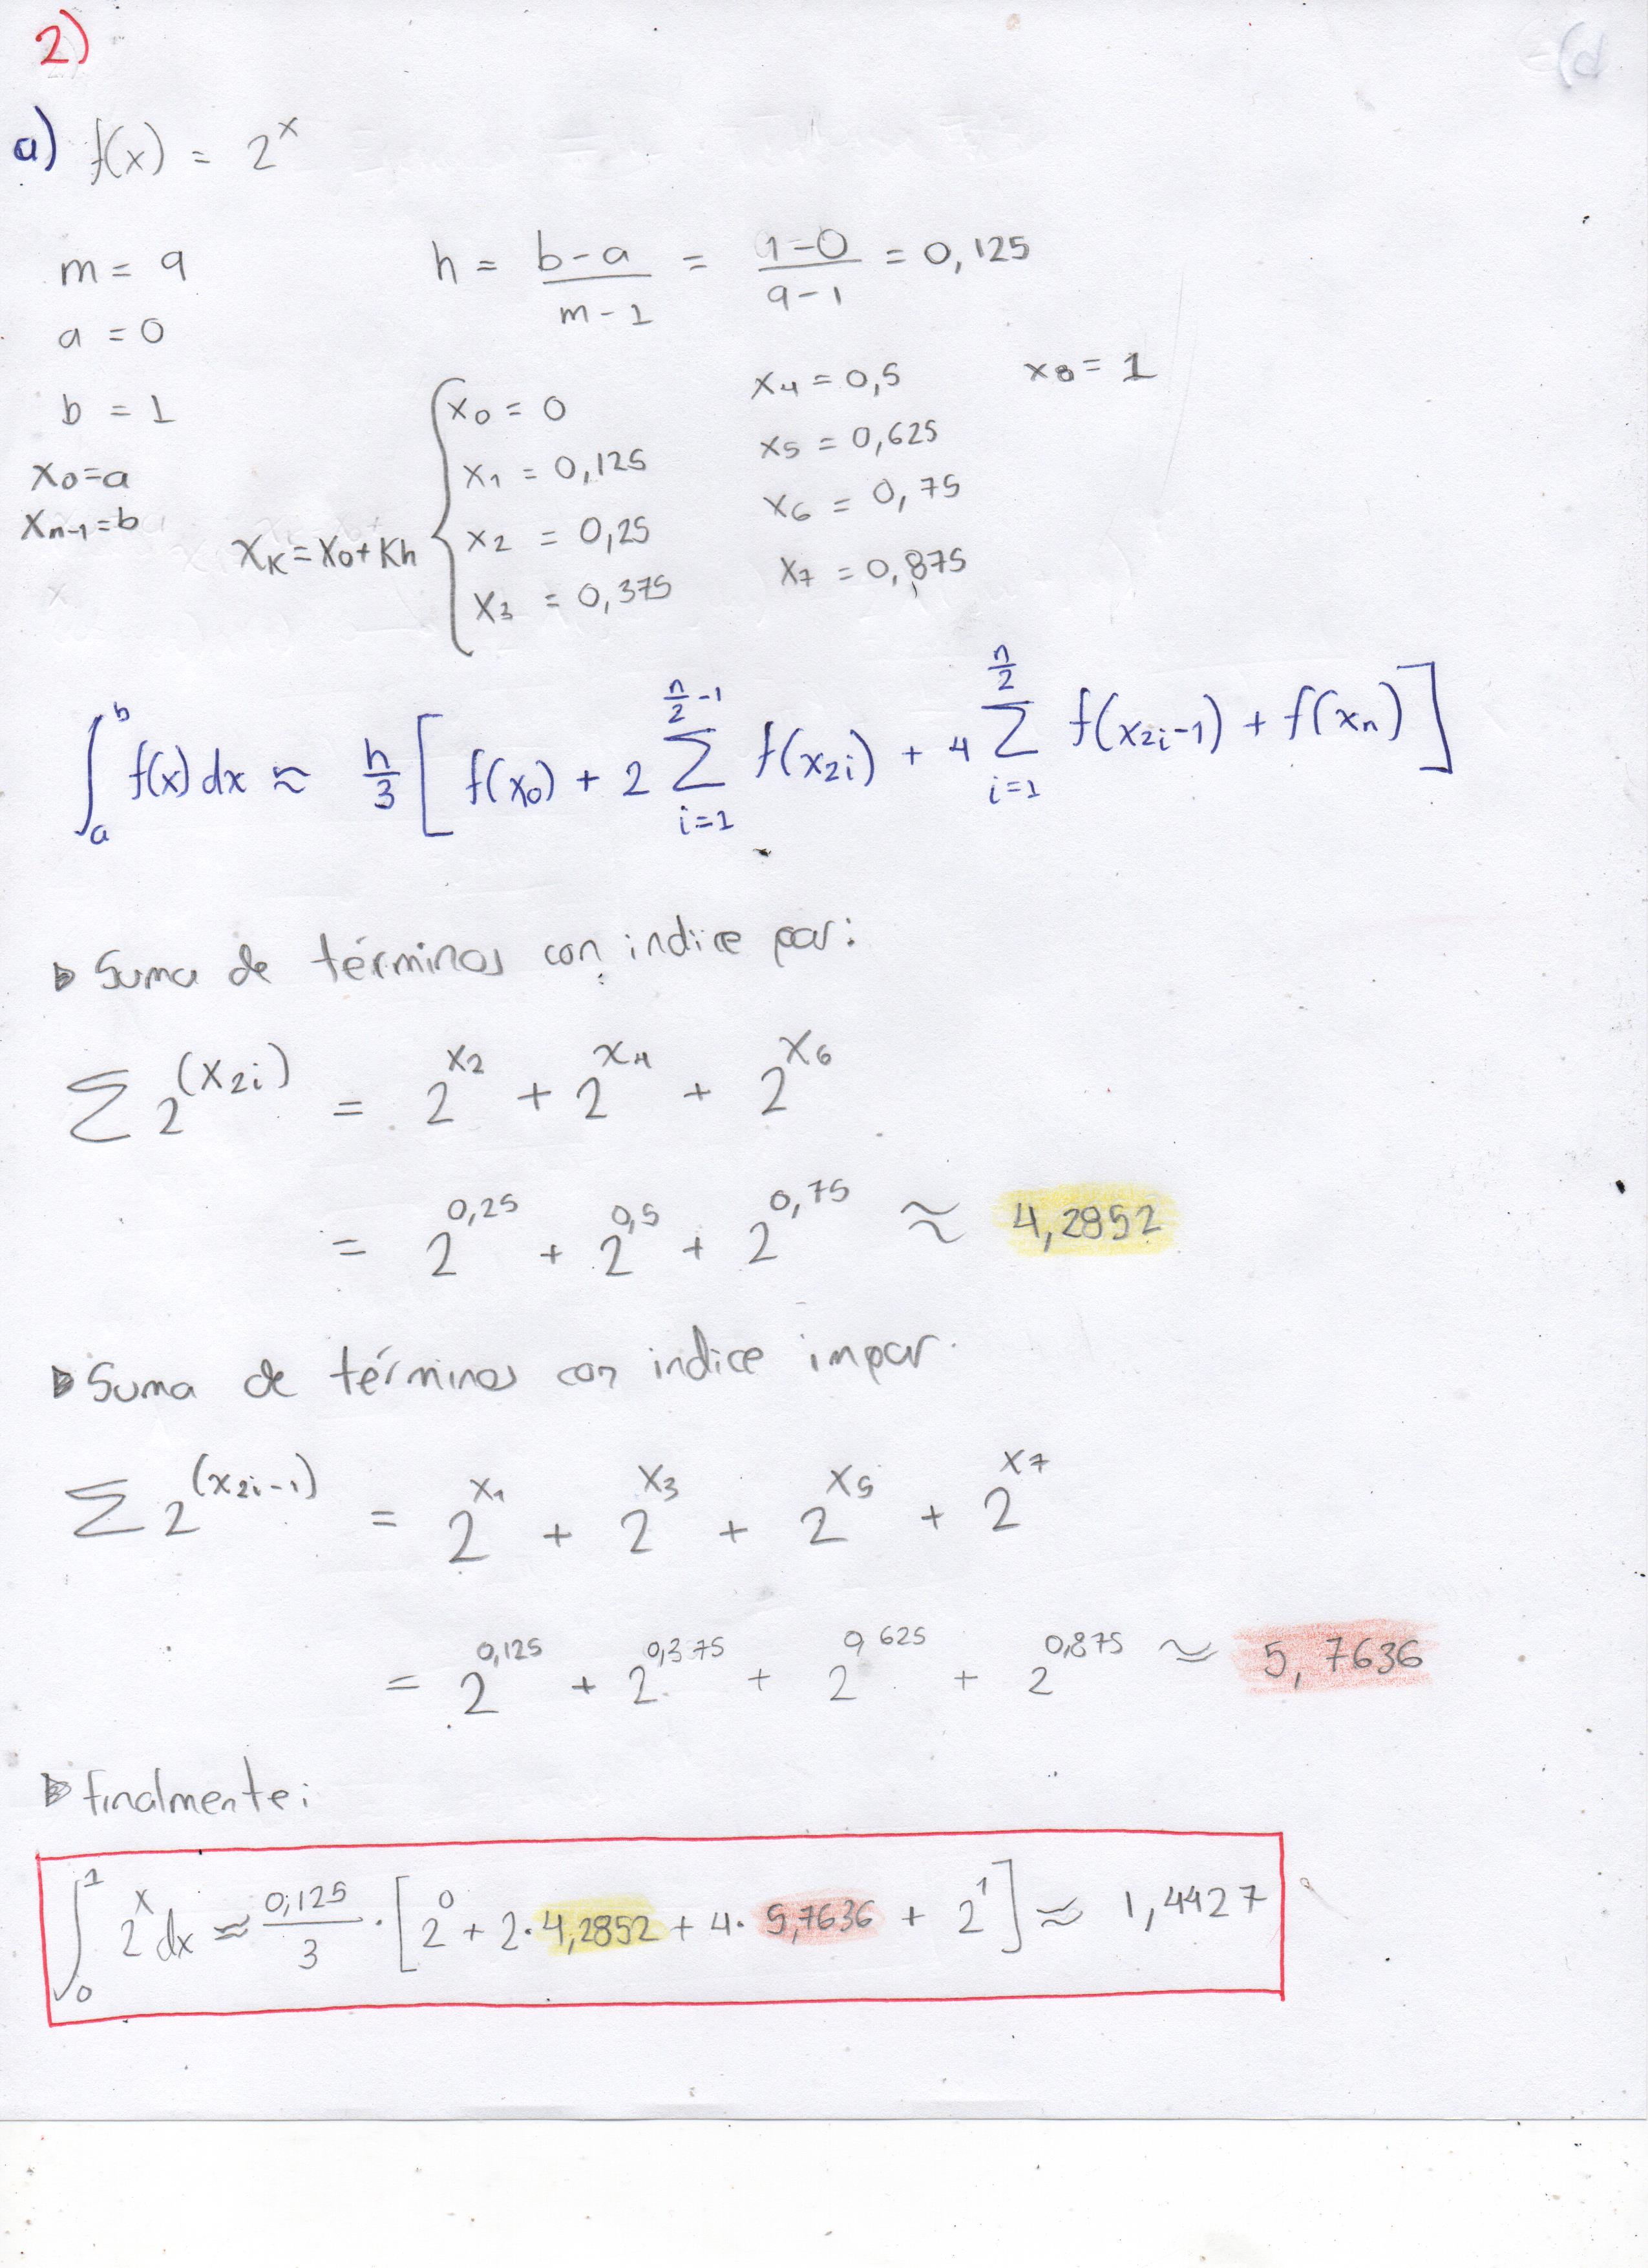 2)
a) f(x) = 2^x
m = 9
a = 0
b = 1
x₀=a
xₙ₋₁=b
h = (b-a)/(m-1) = (1-0)/(9-1) = 0,125
x_K = x₀ + Kh
x₀ = 0
x₁ = 0,125
x₂ = 0,25
x₃ = 0,375
x₄ = 0,5
x₅ = 0,625
x₆ = 0,75
x₇ = 0,875
x₈ = 1
∫_a^b f(x) dx ≈ h/3 [ f(x₀) + 2 ∑_{i=1}^{n/2 -1} f(x_{2i}) + 4 ∑_{i=1}^{n/2} f(x_{2i-1}) + f(xₙ) ]
▷ Suma de términos con indice par:
∑ 2^(x_{2i}) = 2^{x₂} + 2^{x₄} + 2^{x₆}
= 2^{0,25} + 2^{0,5} + 2^{0,75} ≈ 4,2852
▷ Suma de términos con indice impar.
∑ 2^(x_{2i-1}) = 2^{x₁} + 2^{x₃} + 2^{x₅} + 2^{x₇}
= 2^{0,125} + 2^{0,375} + 2^{0,625} + 2^{0,875} ≈ 5,7636
▷ finalmente:
∫_0^1 2^x dx ≈ 0,125/3 · [ 2^0 + 2·4,2852 + 4·5,7636 + 2^1 ] ≈ 1,4427